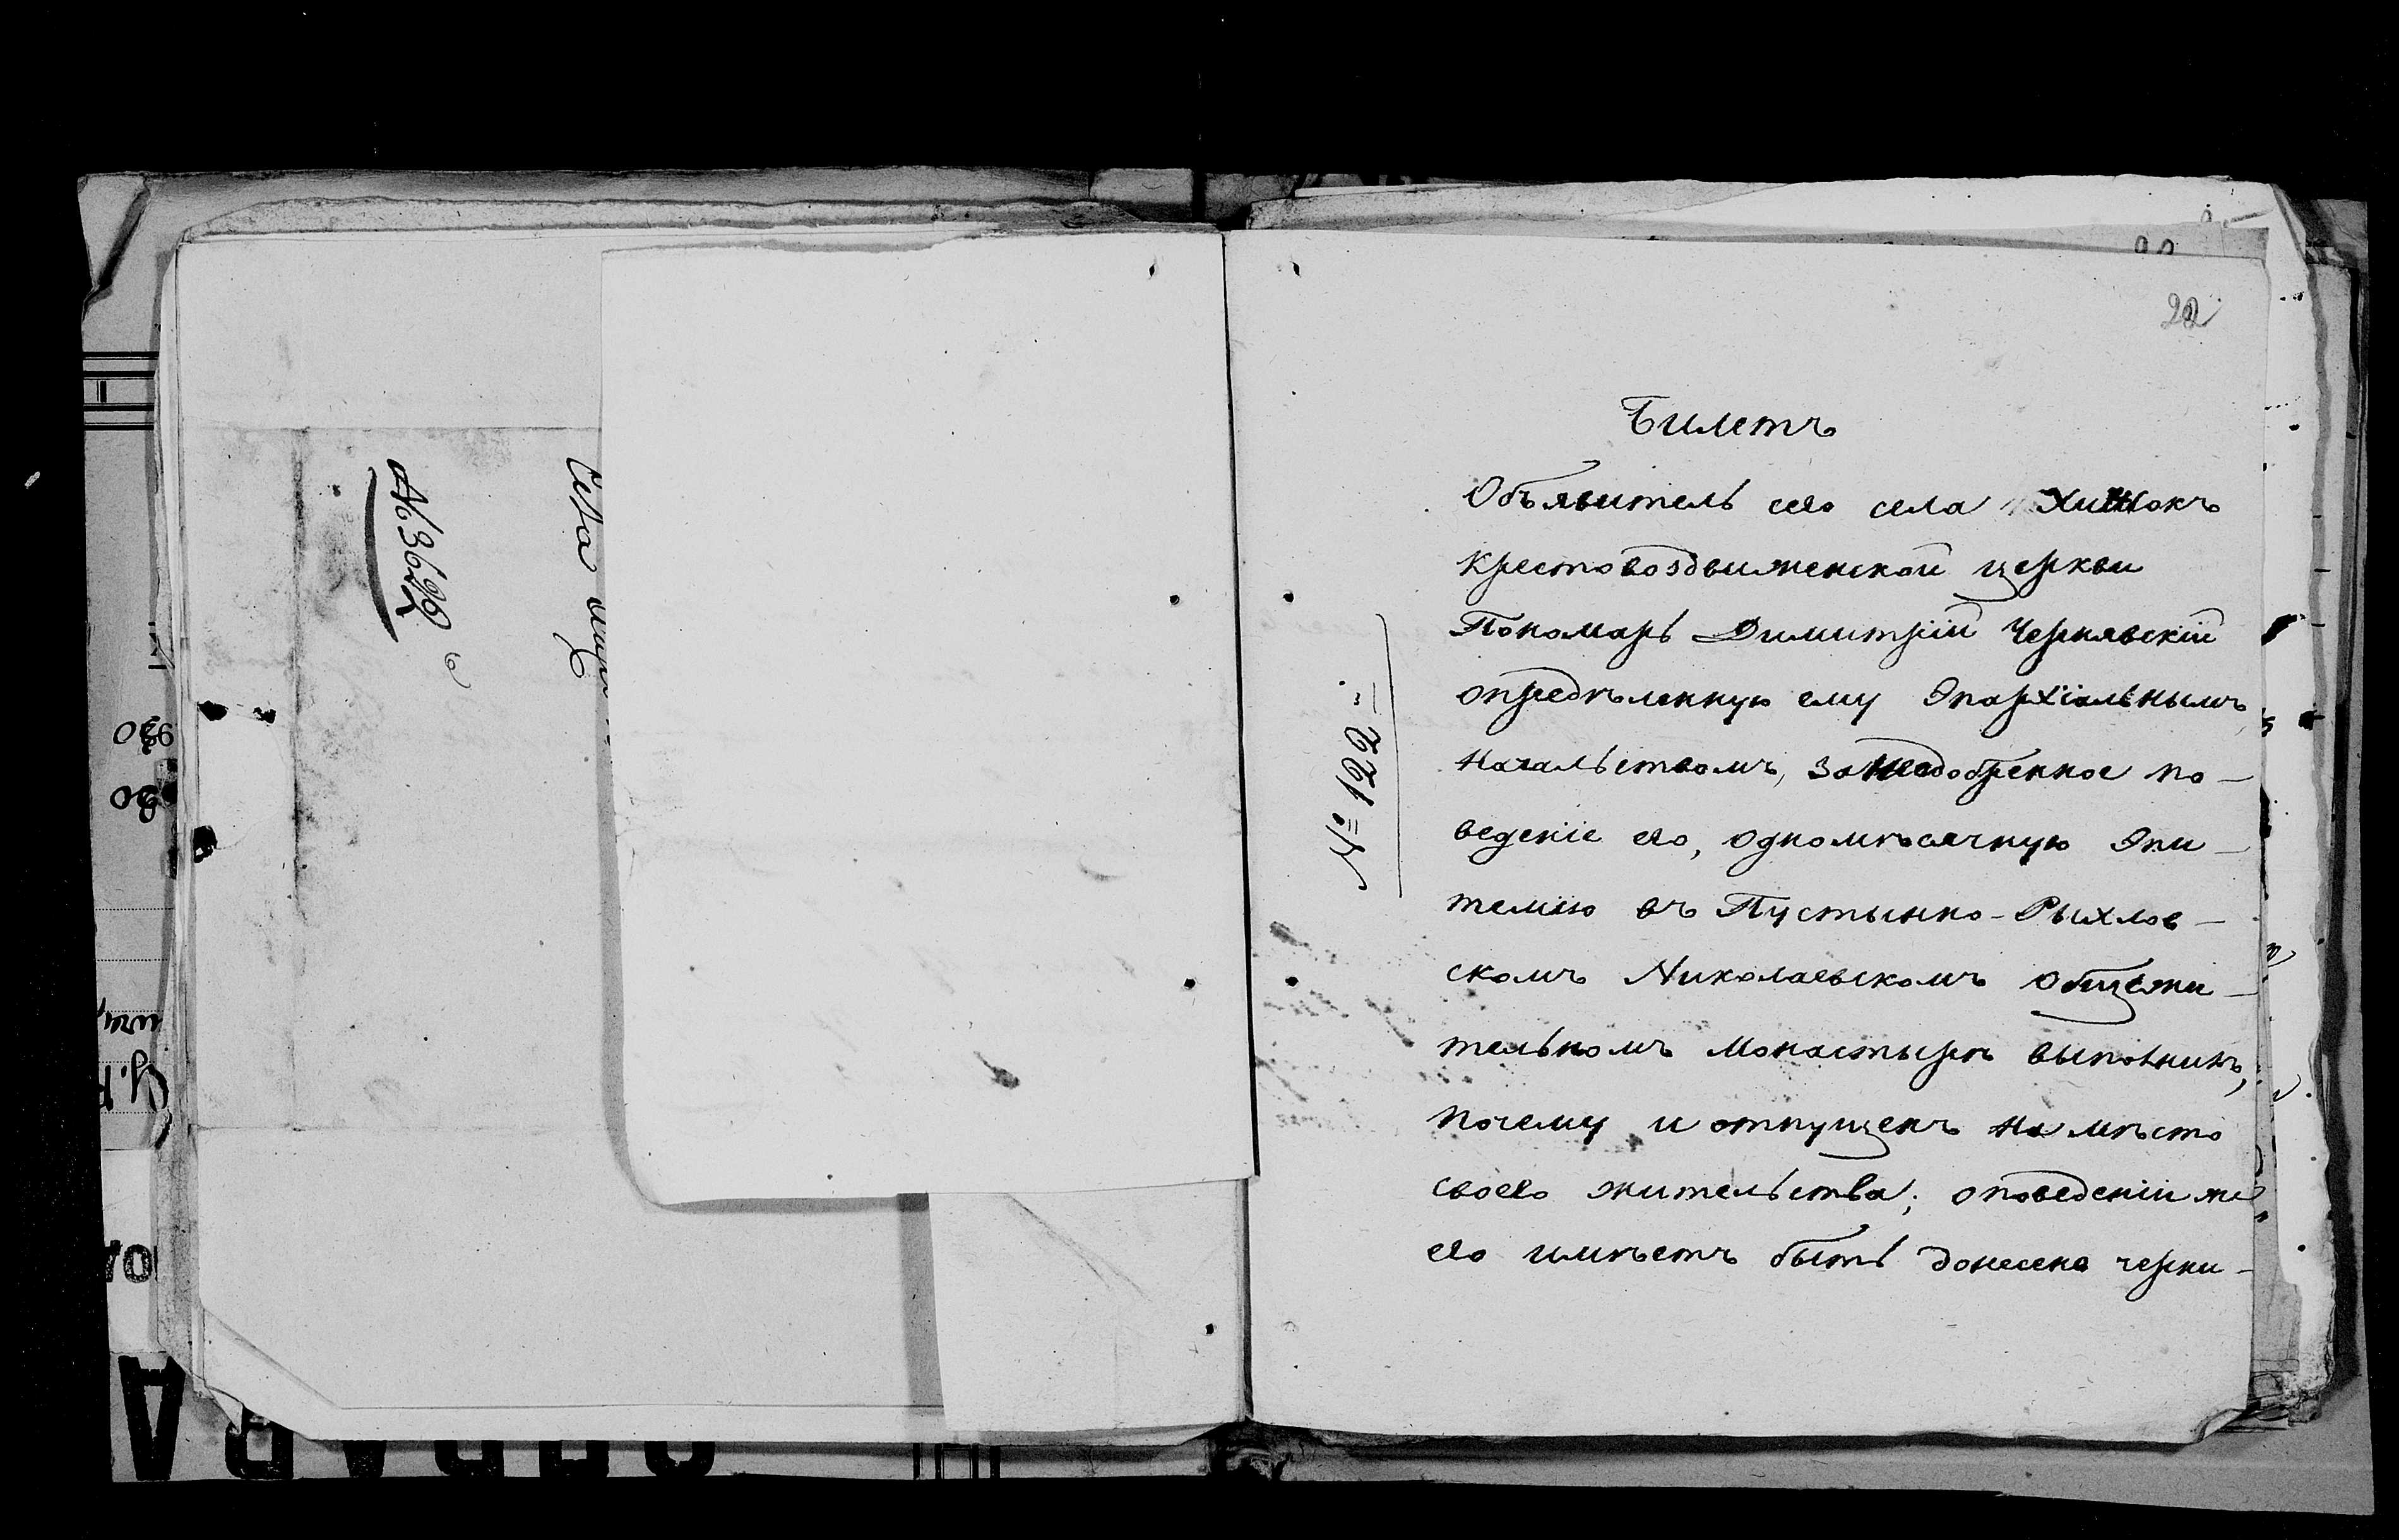 № 3698
Села
20
Билетъ
Объявитель сего села Хижокъ
Крестовоздвиженской церкви
Пономарь Димитрій Чернявскій
опредѣленную ему Эпархіальнымъ
Начальствомъ, за недобренное по-
веденіе его, одномѣсячную Эпи-
темію въ Пустынно-Рыхлов-
скомъ Николаевскомъ Общежи-
тельномъ Монастырѣ выполнилъ,
почему и отпущенъ на мѣсто
своего жительства; о поведеніи же
его имѣетъ быть донесено черни-
№ 122